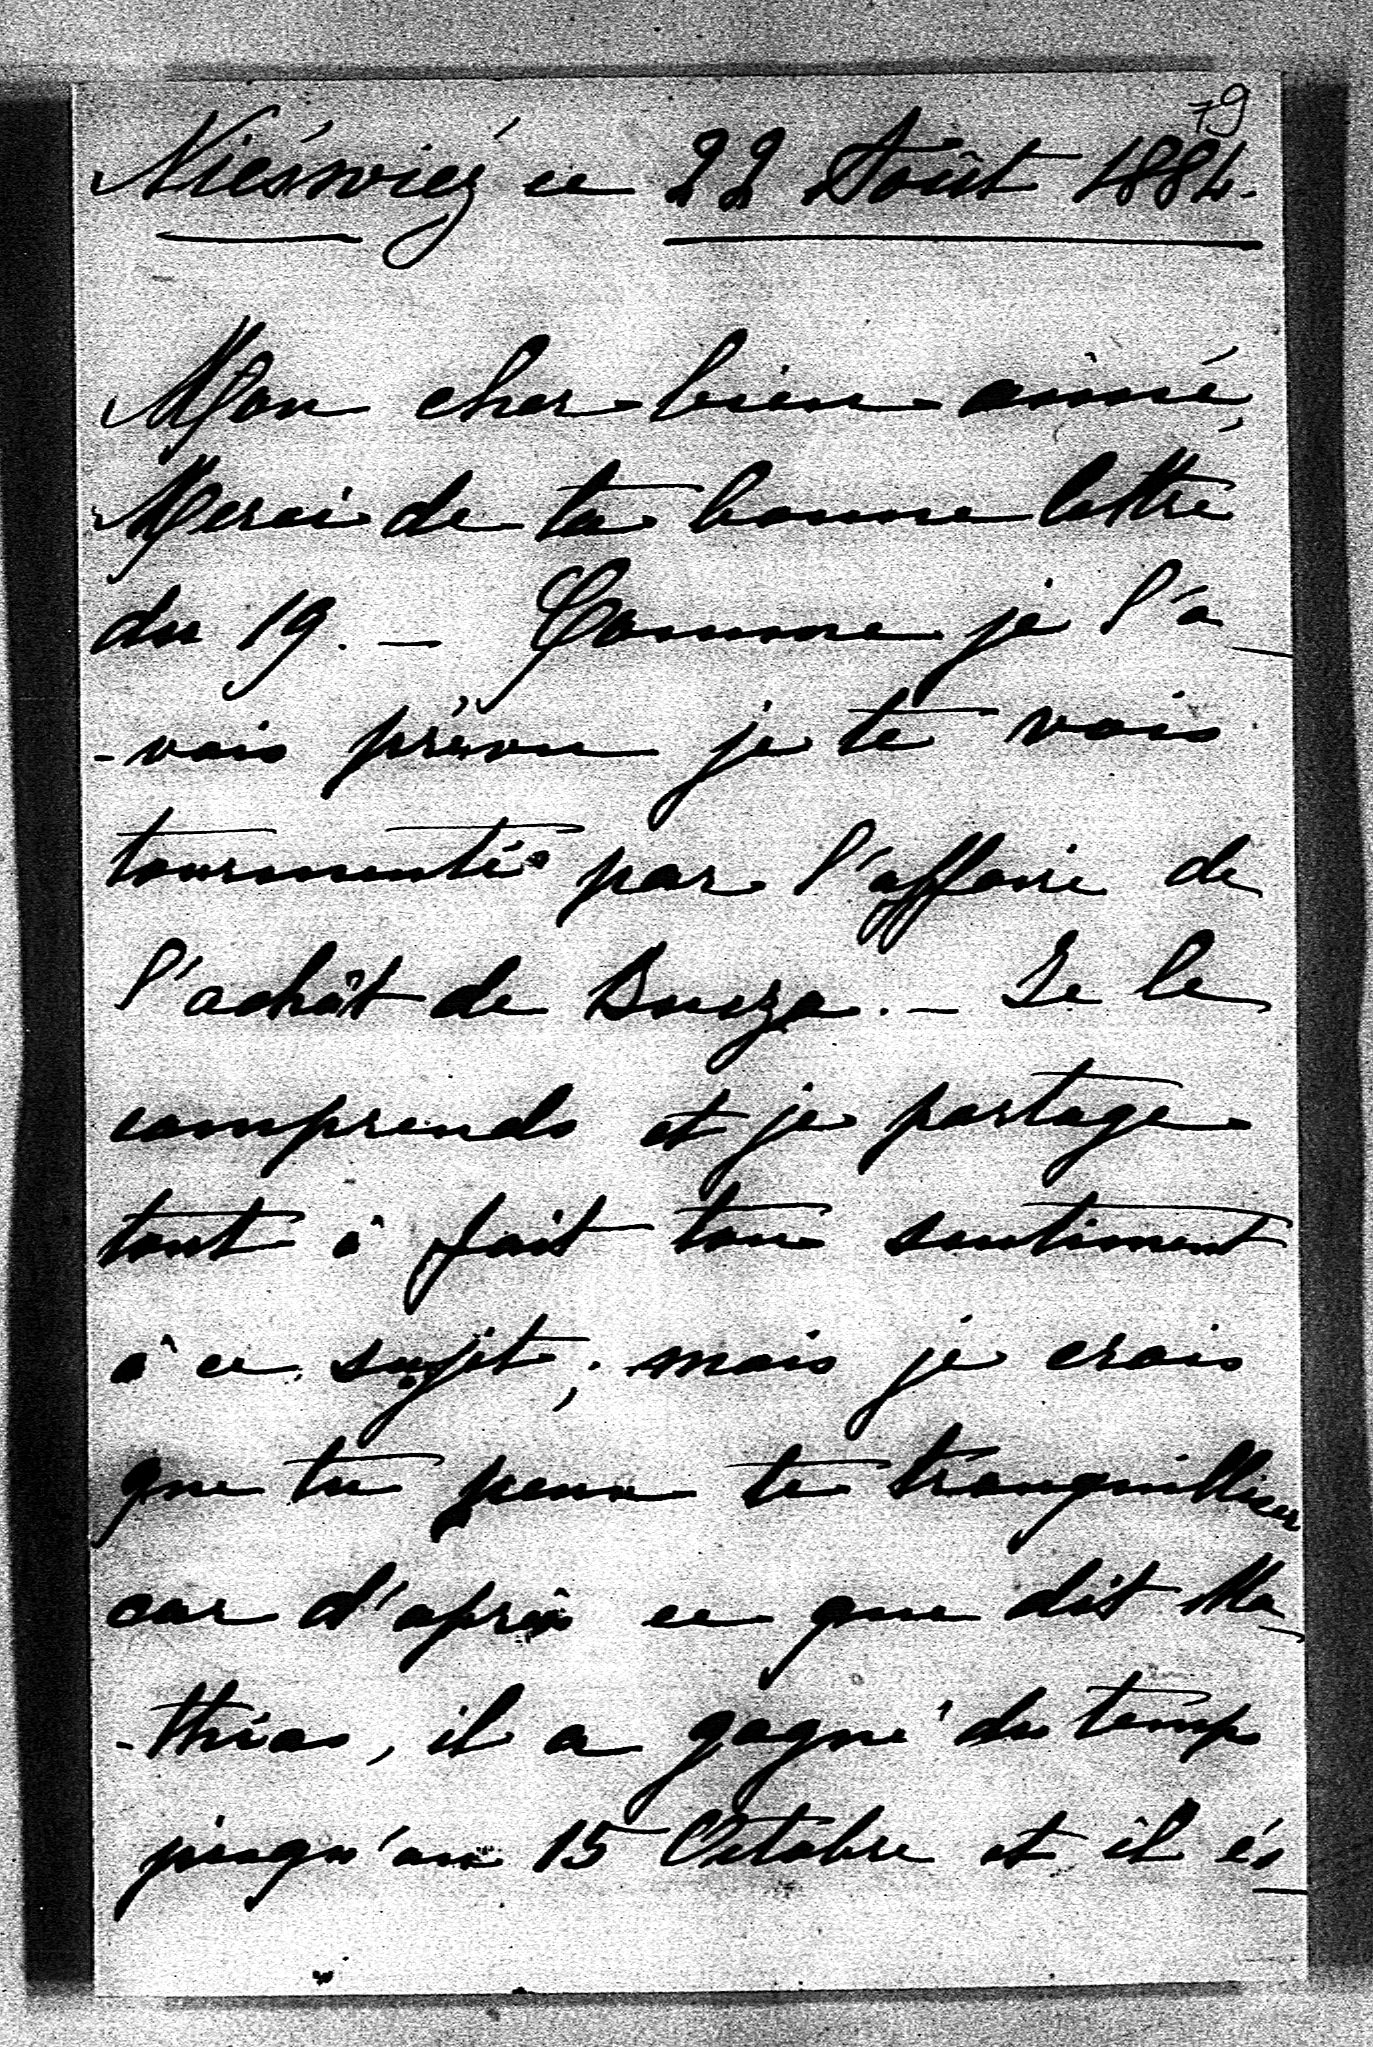 79
Nieświeź ce 22 Août 1884.
Mon cher bien aimé,
Merci de ta bonne lettre
du 19. — Comme je l'a-
-vais prévu je te vois
tourmenté par l'affaire de
l'achât de Bucza. — Je le
comprends et je partage
tout à fait ton sentiment
à ce sujet; mais je crois
que tu peux te tranquilliser
car d'après ce que dit Ma-
-thias, il a gagné du temps
jusqu'au 15 Octobre et il és-